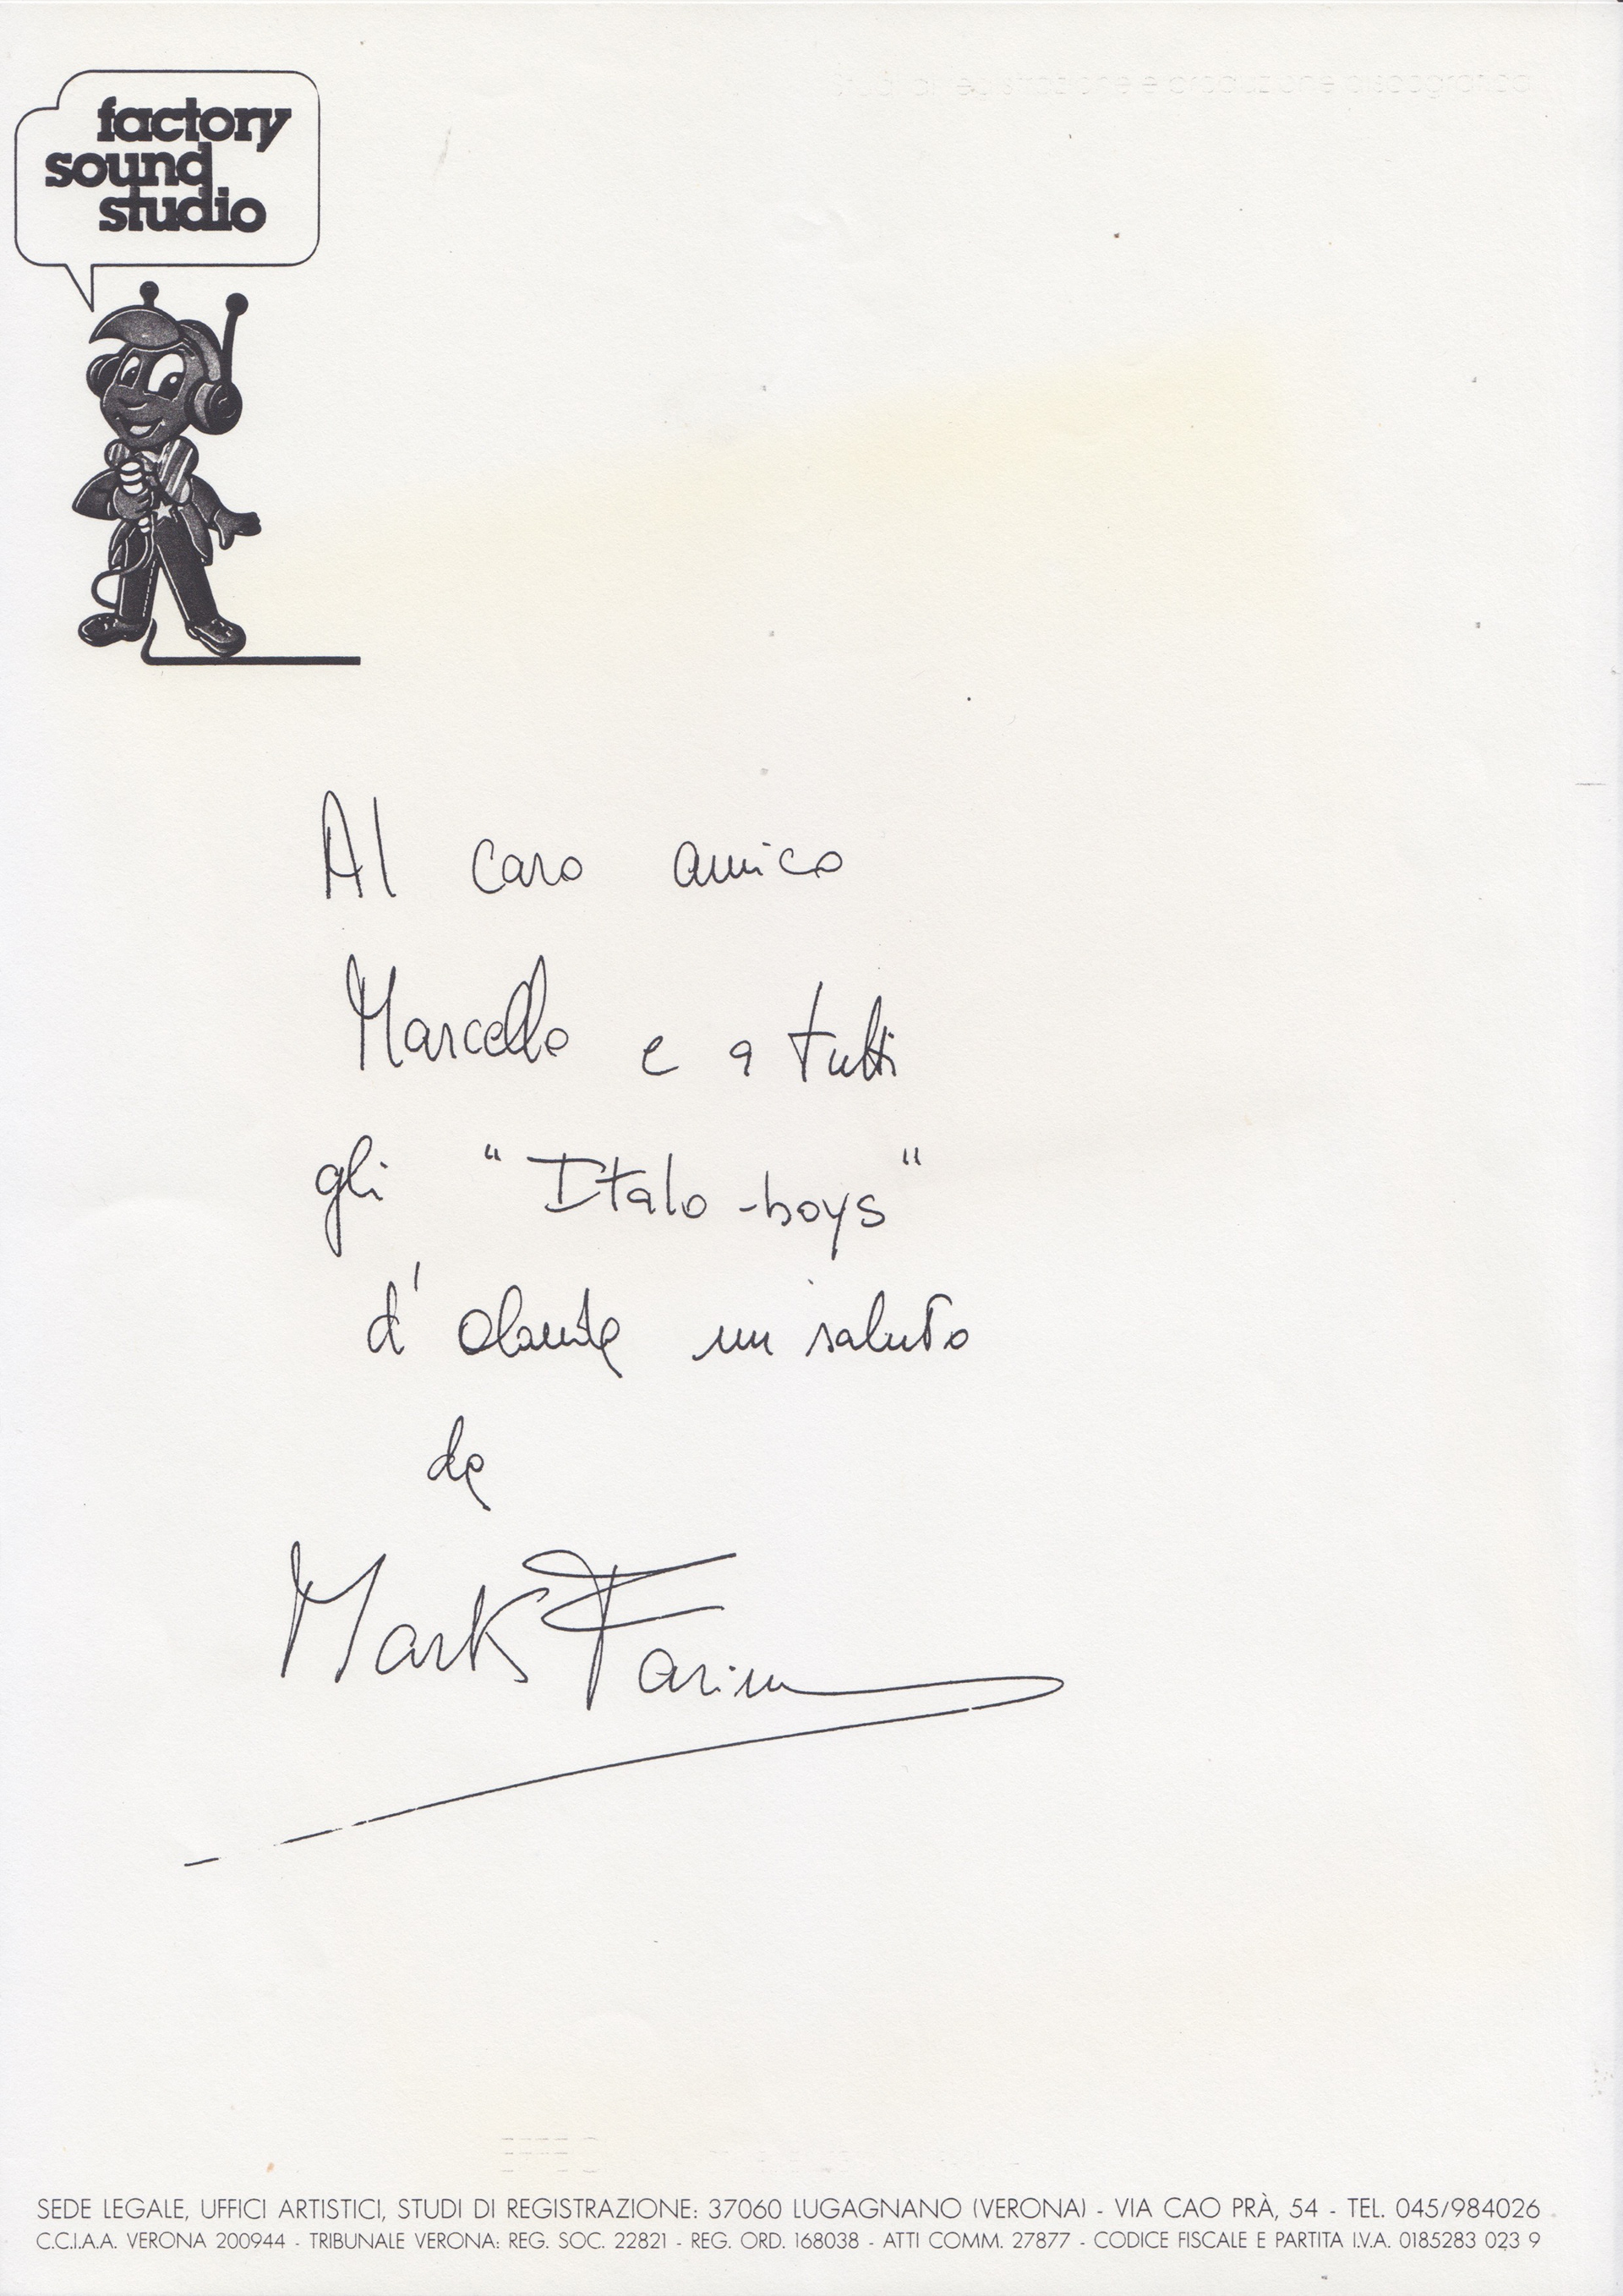 factory
sound
studio
Al caro amico
Marcello e a tutti
gli "Italo-boys"
d'Olanda un saluto
da
Mark Farina
SEDE LEGALE, UFFICI ARTISTICI, STUDI DI REGISTRAZIONE: 37060 LUGAGNANO (VERONA) - VIA CAO PRÀ, 54 - TEL. 045/984026
C.C.I.A.A. VERONA 200944 - TRIBUNALE VERONA: REG. SOC. 22821 - REG. ORD. 168038 - ATTI COMM. 27877 - CODICE FISCALE E PARTITA I.V.A. 0185283 023 9